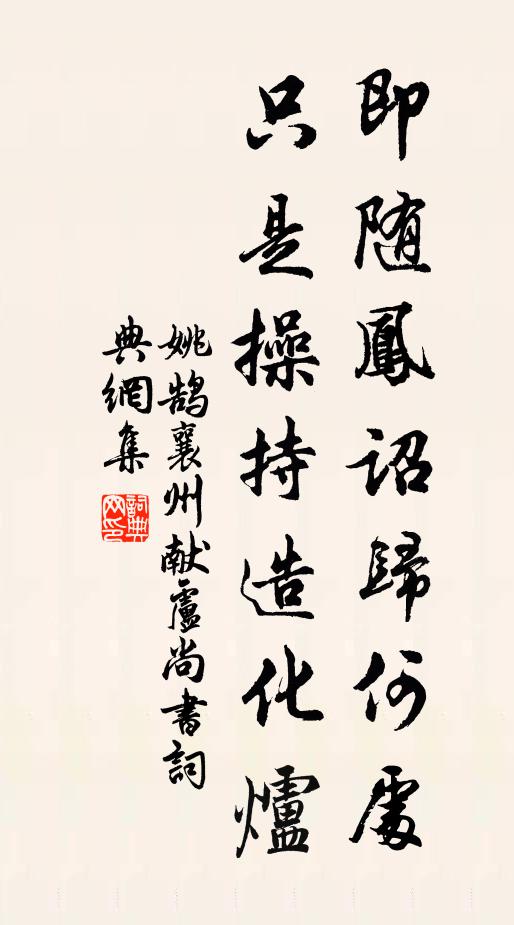 即随鳳詔歸何處
只是操持造化爐
姚鹄襄州献盧尚書詞
典網集
詞典網印